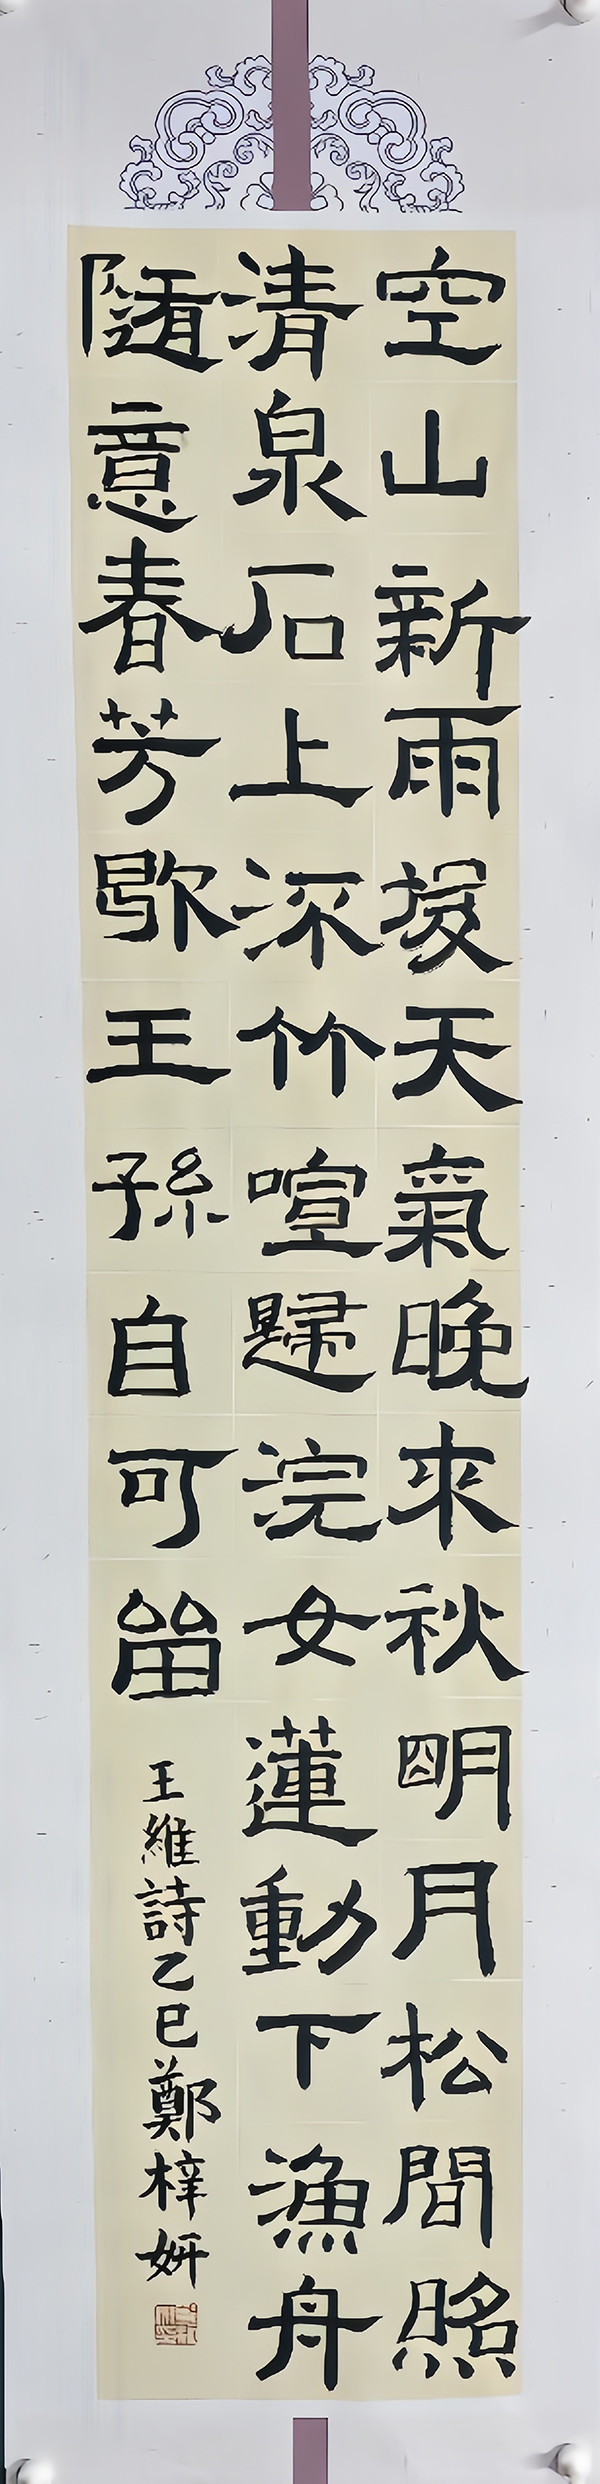 空山新雨後天氣晚來秋明月松間照
清泉石上流竹喧歸浣女蓮動下漁舟
隨意春芳歇王孫自可留
王維詩乙巳鄭梓妍